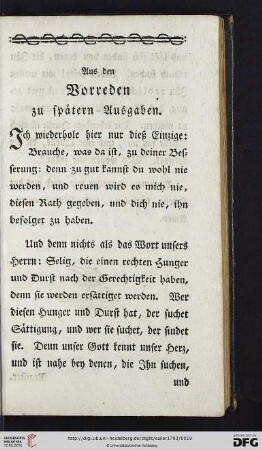 Aus den
Vorreden
zu spätern Ausgaben.
Ich wiederhole hier nur dieß Einzige:
Brauche, was da ist, zu deiner Bes-
serung: denn zu gut kannst du wohl nie
werden, und reuen wird es mich nie,
diesen Rath gegeben, und dich nie, ihn
befolget zu haben.
Und denn nichts als das Wort unsers
Herrn: Selig, die einen rechten Hunger
und Durst nach der Gerechtigkeit haben,
denn sie werden ersättiget werden. Wer
diesen Hunger und Durst hat, der suchet
Sättigung, und wer sie suchet, der findet
sie. Denn unser Gott kennt unser Herz,
und ist nahe bey denen, die Ihn suchen,
und
UNIVERSITÄTS-
BIBLIOTHEK
HEIDELBERG
http://digi.ub.uni-heidelberg.de/diglit/sailer1793/0019
© Universitätsbibliothek Heidelberg
gefördert durch die
DFG